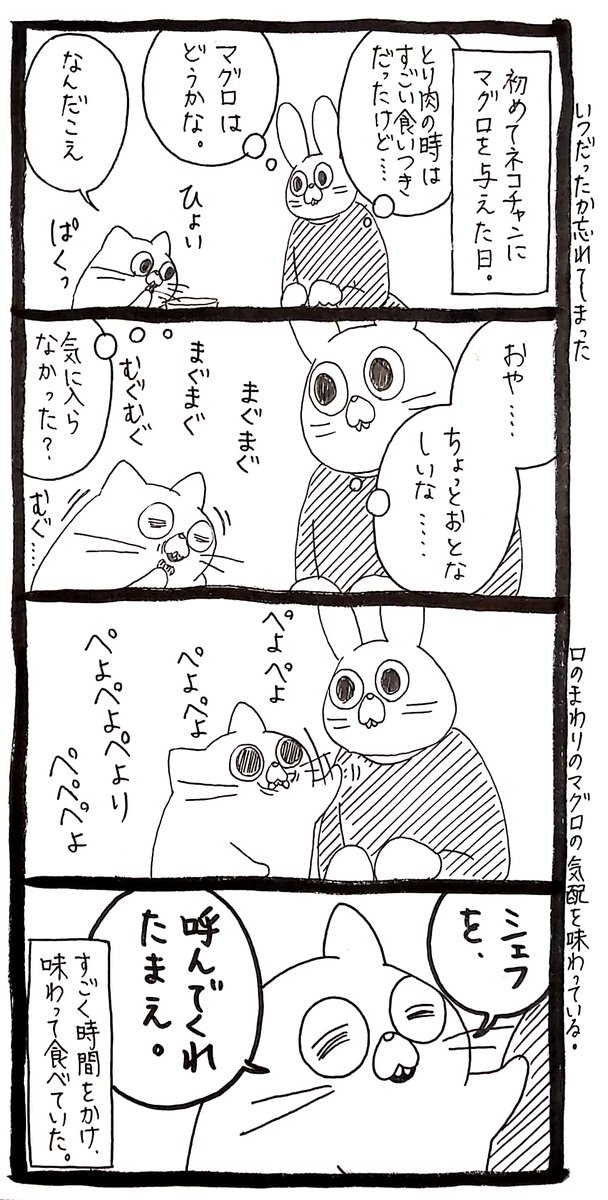 いつだったか忘れてしまった
初めてネコチャンに
マグロを与えた日。
とり肉の時は
すごい食いつき
だったけど……
マグロは
どうかな。
なんだこえ
ひょい
ぱくっ
おや……
ちょっとおとな
しいな……
まぐまぐ
まぐまぐ
むぐむぐ
気に入ら
なかった?
むぐ…
口のまわりのマグロの気配を味わっている。
ぺよぺよ
ぺよぺよ
ぺよぺよぺより
ぺぺぺよ
シェフ
を、
呼んでくれ
たまえ。
すごく時間をかけ、
味わって食べていた。